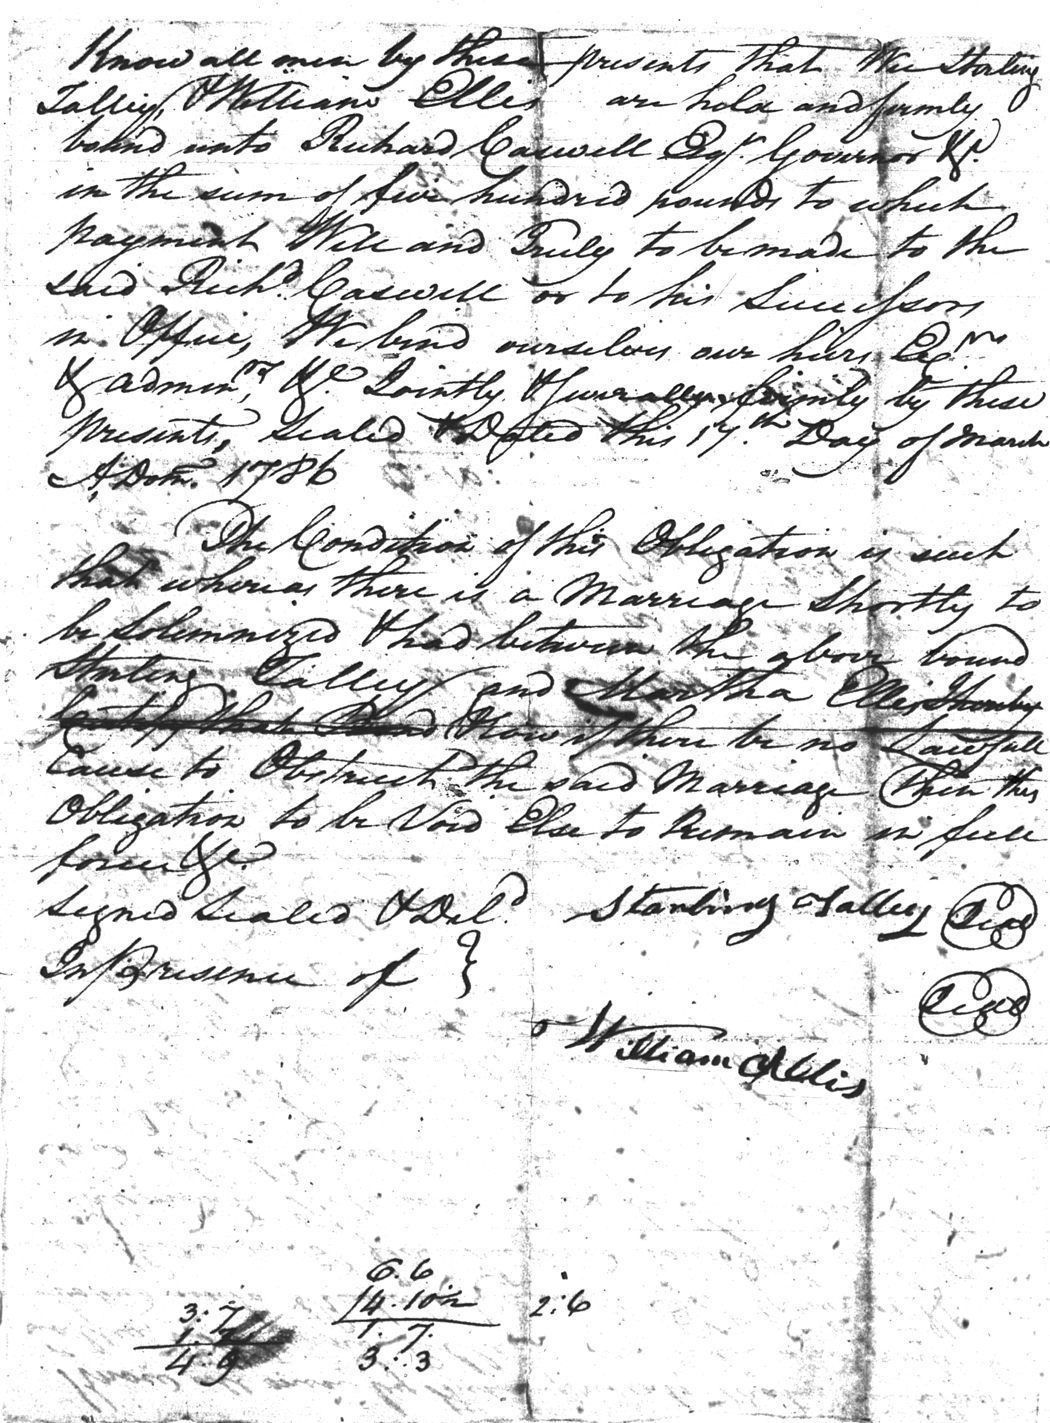 Know all men by these presents that Wee Starling
Talley, & William Ellis are held and firmly
bound unto Richard Caswell Esqr. Governor &c.
in the sum of five hundred pounds to which
payment Well and Truly to be made to the
said Richd. Caswell or to his Successors
in Office, We bind ourselves our heirs Exrs
& adminrs, &c Jointly & severally, firmly by these
presents, Sealed & Dated this 17.th Day of March
A, Dom. 1786
The Condition of this Obligation is such
that whereas there is a Marriage Shortly to
be Solemnized & had between the above bound
Starling Talley and Martha Ellis
Certify that Bond Now if there be no Lawfull
Cause to Obstruct the said Marriage Then this
Obligation to be Void Else to Remain in full
force &c.
Signed Sealed & Deld. Starling Talley Seal
In Presence of }
Seal
William Ellis
6.6
3:7 14.10½ 2:6
1.7
4:9 3:.3